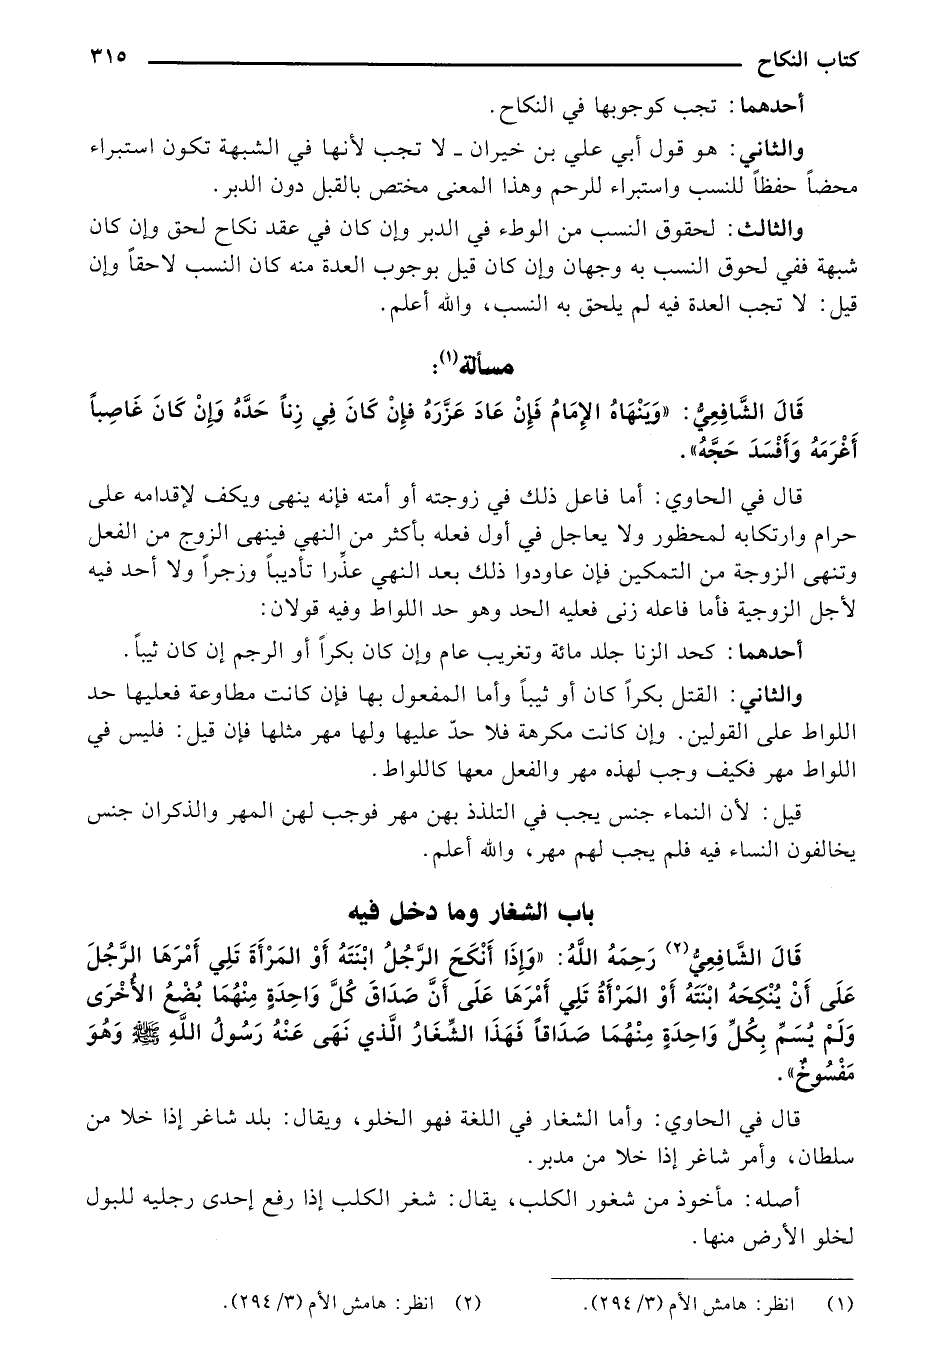 كتاب النكاح ٣١٥
أحدهما: تجب كوجوبها في النكاح.
والثاني: هو قول أبي علي بن خيران ـ لا تجب لأنها في الشبهة تكون استبراء
محضاً حفظاً للنسب واستبراء للرحم وهذا المعنى مختص بالقبل دون الدبر.
والثالث: لحقوق النسب من الوطء في الدبر وإن كان في عقد نكاح لحق وإن كان
شبهة ففي لحوق النسب به وجهان وإن كان قيل بوجوب العدة منه كان النسب لاحقاً وإن
قيل: لا تجب العدة فيه لم يلحق به النسب، والله أعلم.
مسألة(١):
قَالَ الشَّافِعِيُّ: «وَيَنْهَاهُ الإِمَامُ فَإِنْ عَادَ عَزَّرَهُ فإِنْ كَانَ فِي زِناً حَدَّهُ وَإِنْ كَانَ غَاصِباً
أَغْرَمَهُ وَأَفْسَدَ حَجَّهُ».
قال في الحاوي: أما فاعل ذلك في زوجته أو أمته فإنه ينهى ويكف لإقدامه على
حرام وارتكابه لمحظور ولا يعاجل في أول فعله بأكثر من النهي فينهى الزوج من الفعل
وتنهى الزوجة من التمكين فإن عاودوا ذلك بعد النهي عذِّرا تأديباً وزجراً ولا أحد فيه
لأجل الزوجية فأما فاعله زنى فعليه الحد وهو حد اللواط وفيه قولان:
أحدهما: كحد الزنا جلد مائة وتغريب عام وإن كان بكراً أو الرجم إن كان ثيباً.
والثاني: القتل بكراً كان أو ثيباً وأما المفعول بها فإن كانت مطاوعة فعليها حد
اللواط على القولين. وإن كانت مكرهة فلا حدّ عليها ولها مهر مثلها فإن قيل: فليس في
اللواط مهر فكيف وجب لهذه مهر والفعل معها كاللواط.
قيل: لأن النماء جنس يجب في التلذذ بهن مهر فوجب لهن المهر والذكران جنس
يخالفون النساء فيه فلم يجب لهم مهر، والله أعلم.
باب الشغار وما دخل فيه
قَالَ الشَّافِعِيُّ(٢) رَحِمَهُ اللَّهُ: «وَإِذَا أَنْكَحَ الرَّجُلُ ابْنَتَهُ أَوْ المَرْأَةَ تَلِي أَمْرَهَا الرَّجُلَ
عَلَى أَنْ يُنْكِحَهُ ابْنَتَهُ أَوْ المَرْأَةُ تَلِي أَمْرَهَا عَلَى أَنَّ صَدَاقَ كُلَّ وَاحِدَةٍ مِنْهُمَا بُضْعُ الأُخْرَى
وَلَمْ يُسَمِّ بِكُلِّ وَاحِدَةٍ مِنْهُمَا صَدَاقاً فَهَذَا الشِّغَارُ الَّذي نَهَى عَنْهُ رَسُولُ اللَّهِ ﷺ وَهُوَ
مَفْسُوخٌ».
قال في الحاوي: وأما الشغار في اللغة فهو الخلو، ويقال: بلد شاغر إذا خلا من
سلطان، وأمر شاغر إذا خلا من مدبر.
أصله: مأخوذ من شغور الكلب، يقال: شغر الكلب إذا رفع إحدى رجليه للبول
لخلو الأرض منها.
(١) انظر: هامش الأم (٣/ ٢٩٤). (٢) انظر: هامش الأم (٣/ ٢٩٤).